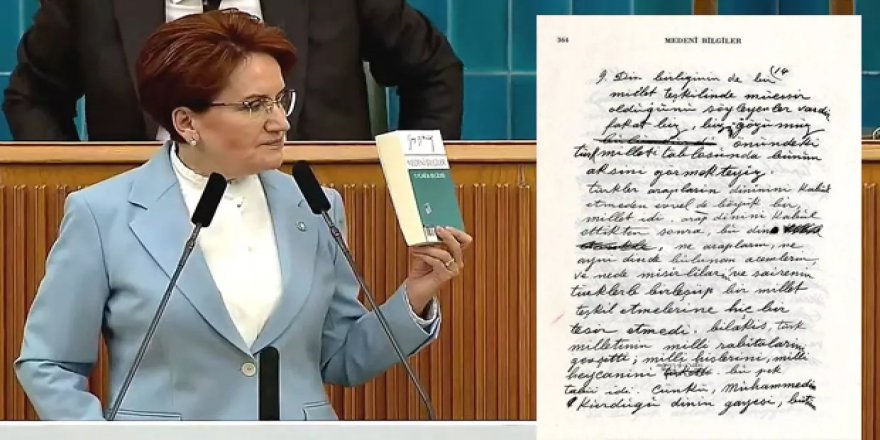 MEDENÎ BİLGİLER
364 MEDENÎ BİLGİLER
9. Din birliğinin de bir 14
millet teşkilinde müessir
olduğunu söyleyenler vardır
fakat biz, bizim gözümüz
önündeki
türk milleti tablosunda bunun
aksini görmekteyiz.
türkler arapların dininini kabul
etmeden evvel de böyük bir
millet idi. arap dinini kabul
ettikten sonra, bu din
, ne arapların, ne
ayni dinde bulunan acemlerin,
ve nede mısırlılar, ve sairenin
türklerle birleşüp bir millet
teşkil etmelerine hiç bir
tesir etmedi. bilâkis, türk
milletinin milli rabıtalarını
gevşetti; milli hislerini, milli
heycanini. bu pek
tabii idi. Çünkü, Muhammedin
Kurduğu dinin gayesi, bütün